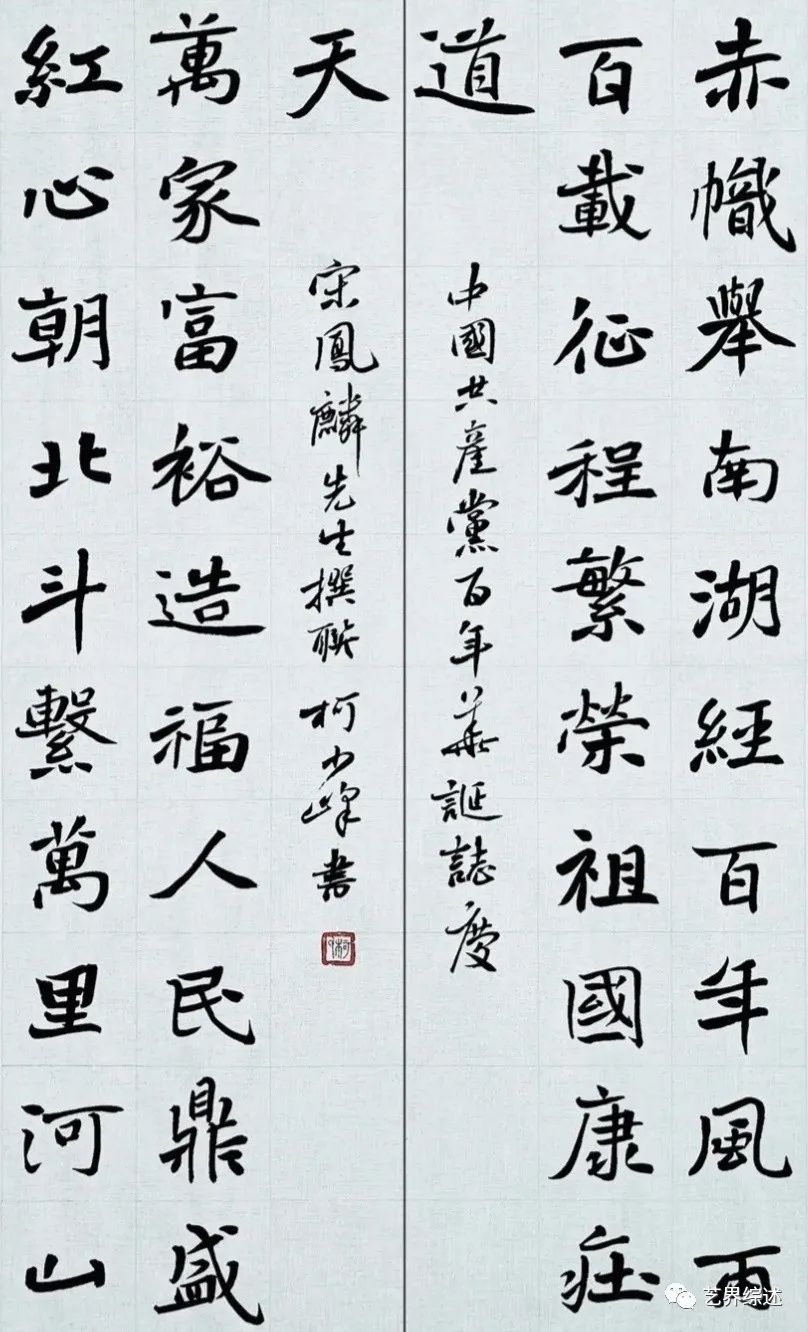 赤幟舉南湖經百年風雨
百載征程繁榮祖國康庄
道
中國共產黨百年華誕誌慶
紅心朝北斗繫萬里河山
萬家富裕造福人民鼎盛
天
宋鳳麟先生撰聯 柯少峰書
艺界综述